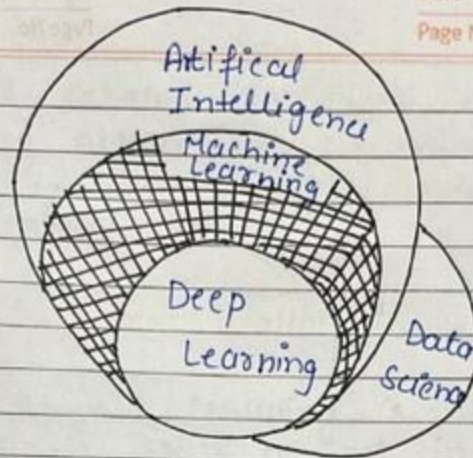 Page N
Page No.
Artifical
Intelligence
Machine
Learning
Deep
Learning
Data
Scienc